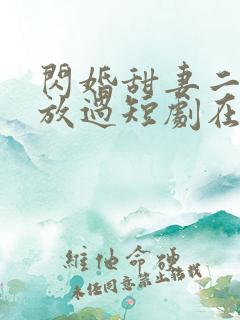 閃婚甜妻二
放過短劇在
維他命硬
未任同意禁止轉載